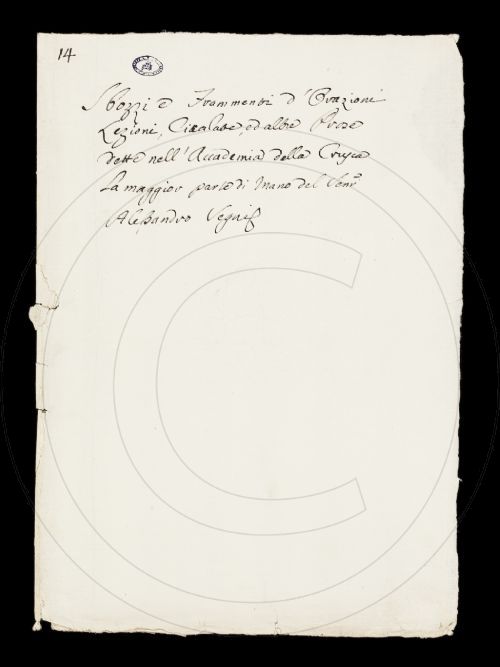 14
Sbozzi e Frammenti d'Orazioni
Lezioni, Cicalate, ed altre Prose
dette nell'Accademia della Crusca
La maggior parte di mano del Senr.
Alessandro Segni